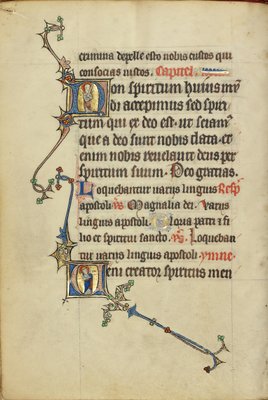 crimina depelle esto nobis custos qui
consocias iustos. Capitl'.
Non spiritum huius mū
di accepimus sed spiri
tum qui ex deo est. ut sciam'
que a deo sunt nobis data. et
enim nobis revelavit deus per
spiritum suum. Deo gratias.
Loquebantur variis linguis Resp̄
apostoli. Magnalia dei. Variis
linguis apostoli. Gloria patri & fi
lio et spiritui sancto. Loqueban
tur variis linguis apostoli. ymne'
Veni creator spiritus men